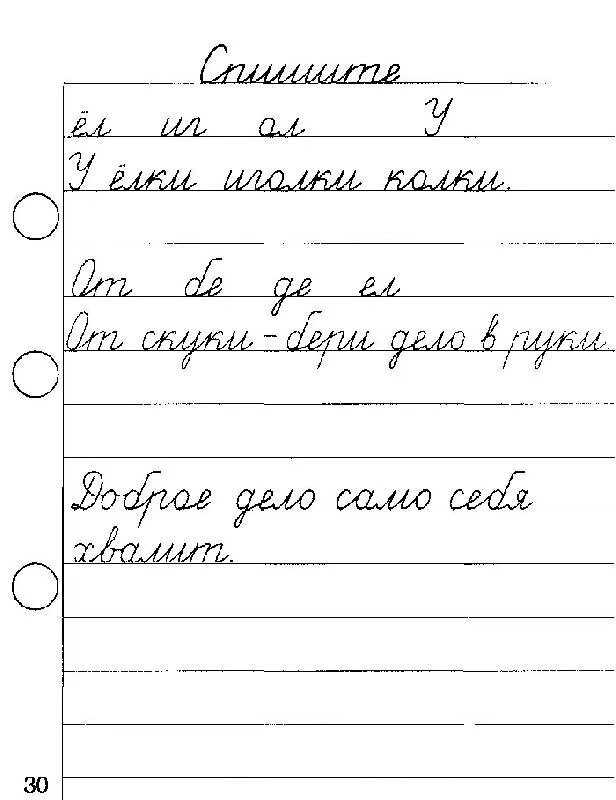 Спишите
ёл иг ол У
У ёлки иголки колки.
От бе де ел
От скуки - бери дело в руки
Доброе дело само себя
хвалит.
30